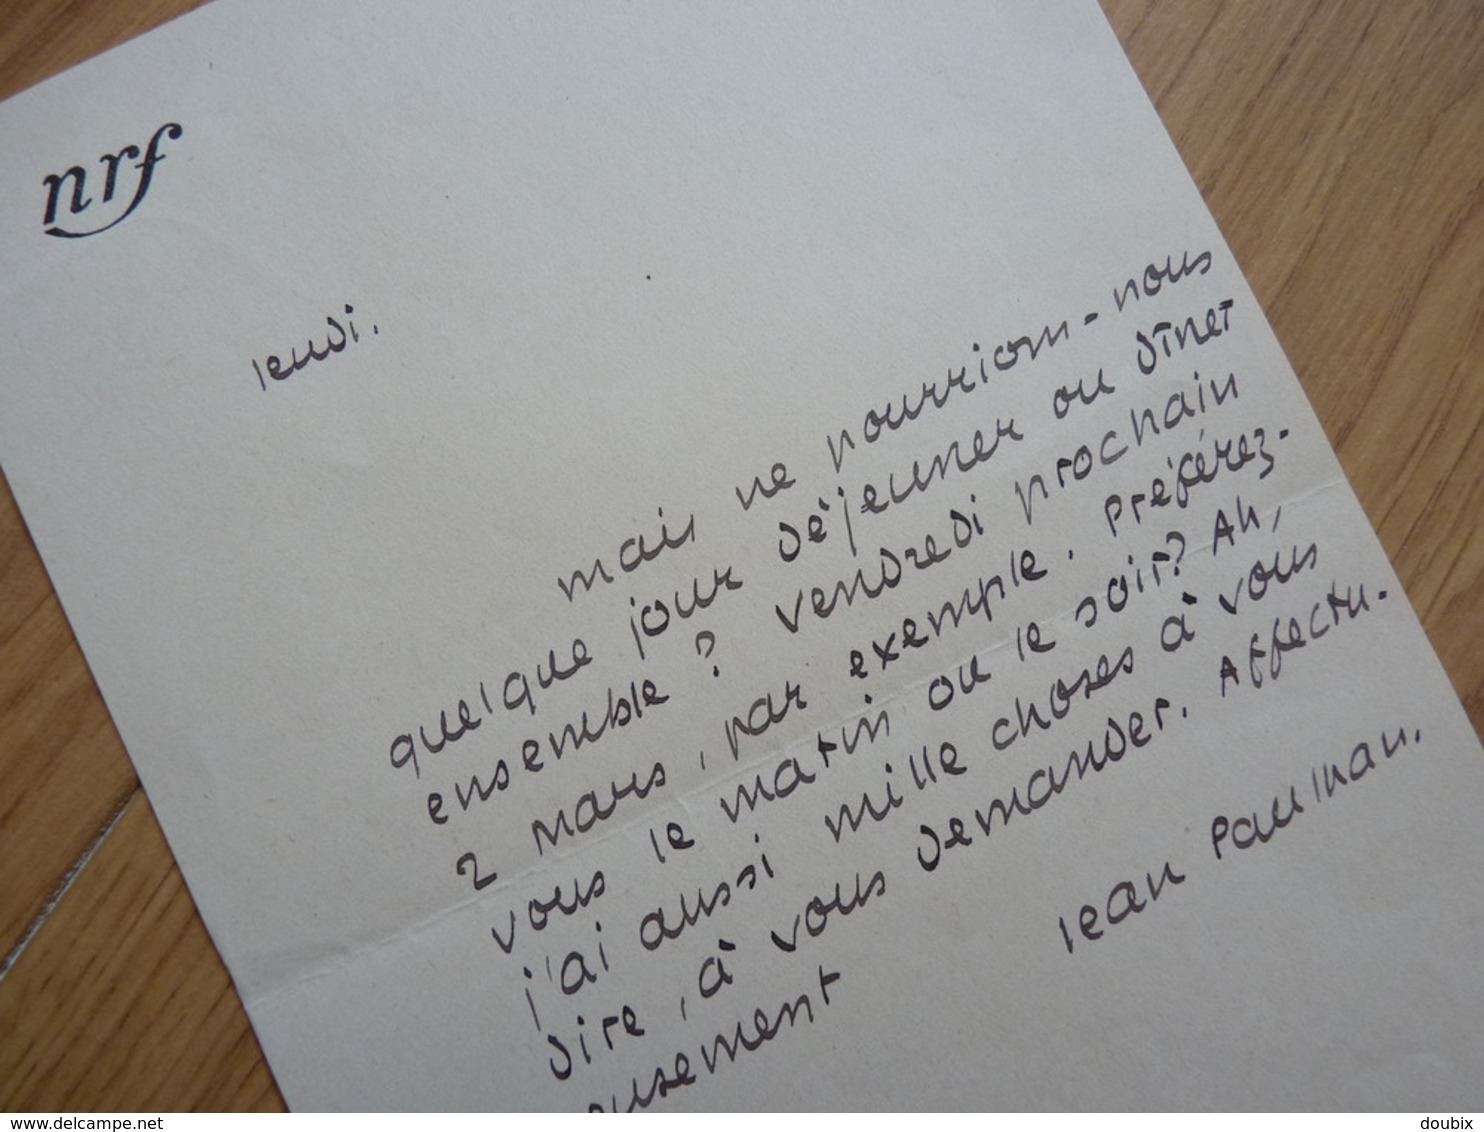 nrf
jeudi.
Mais ne pourrions-nous
quelque jour déjeuner ou dîner
ensemble ? vendredi prochain
2 mars, par exemple. Préférez-
vous le matin ou le soir? Ah,
j'ai aussi mille choses à vous
dire, à vous demander. Affectu-
eusement
Jean Paulhan.
www.delcampe.net
doubix